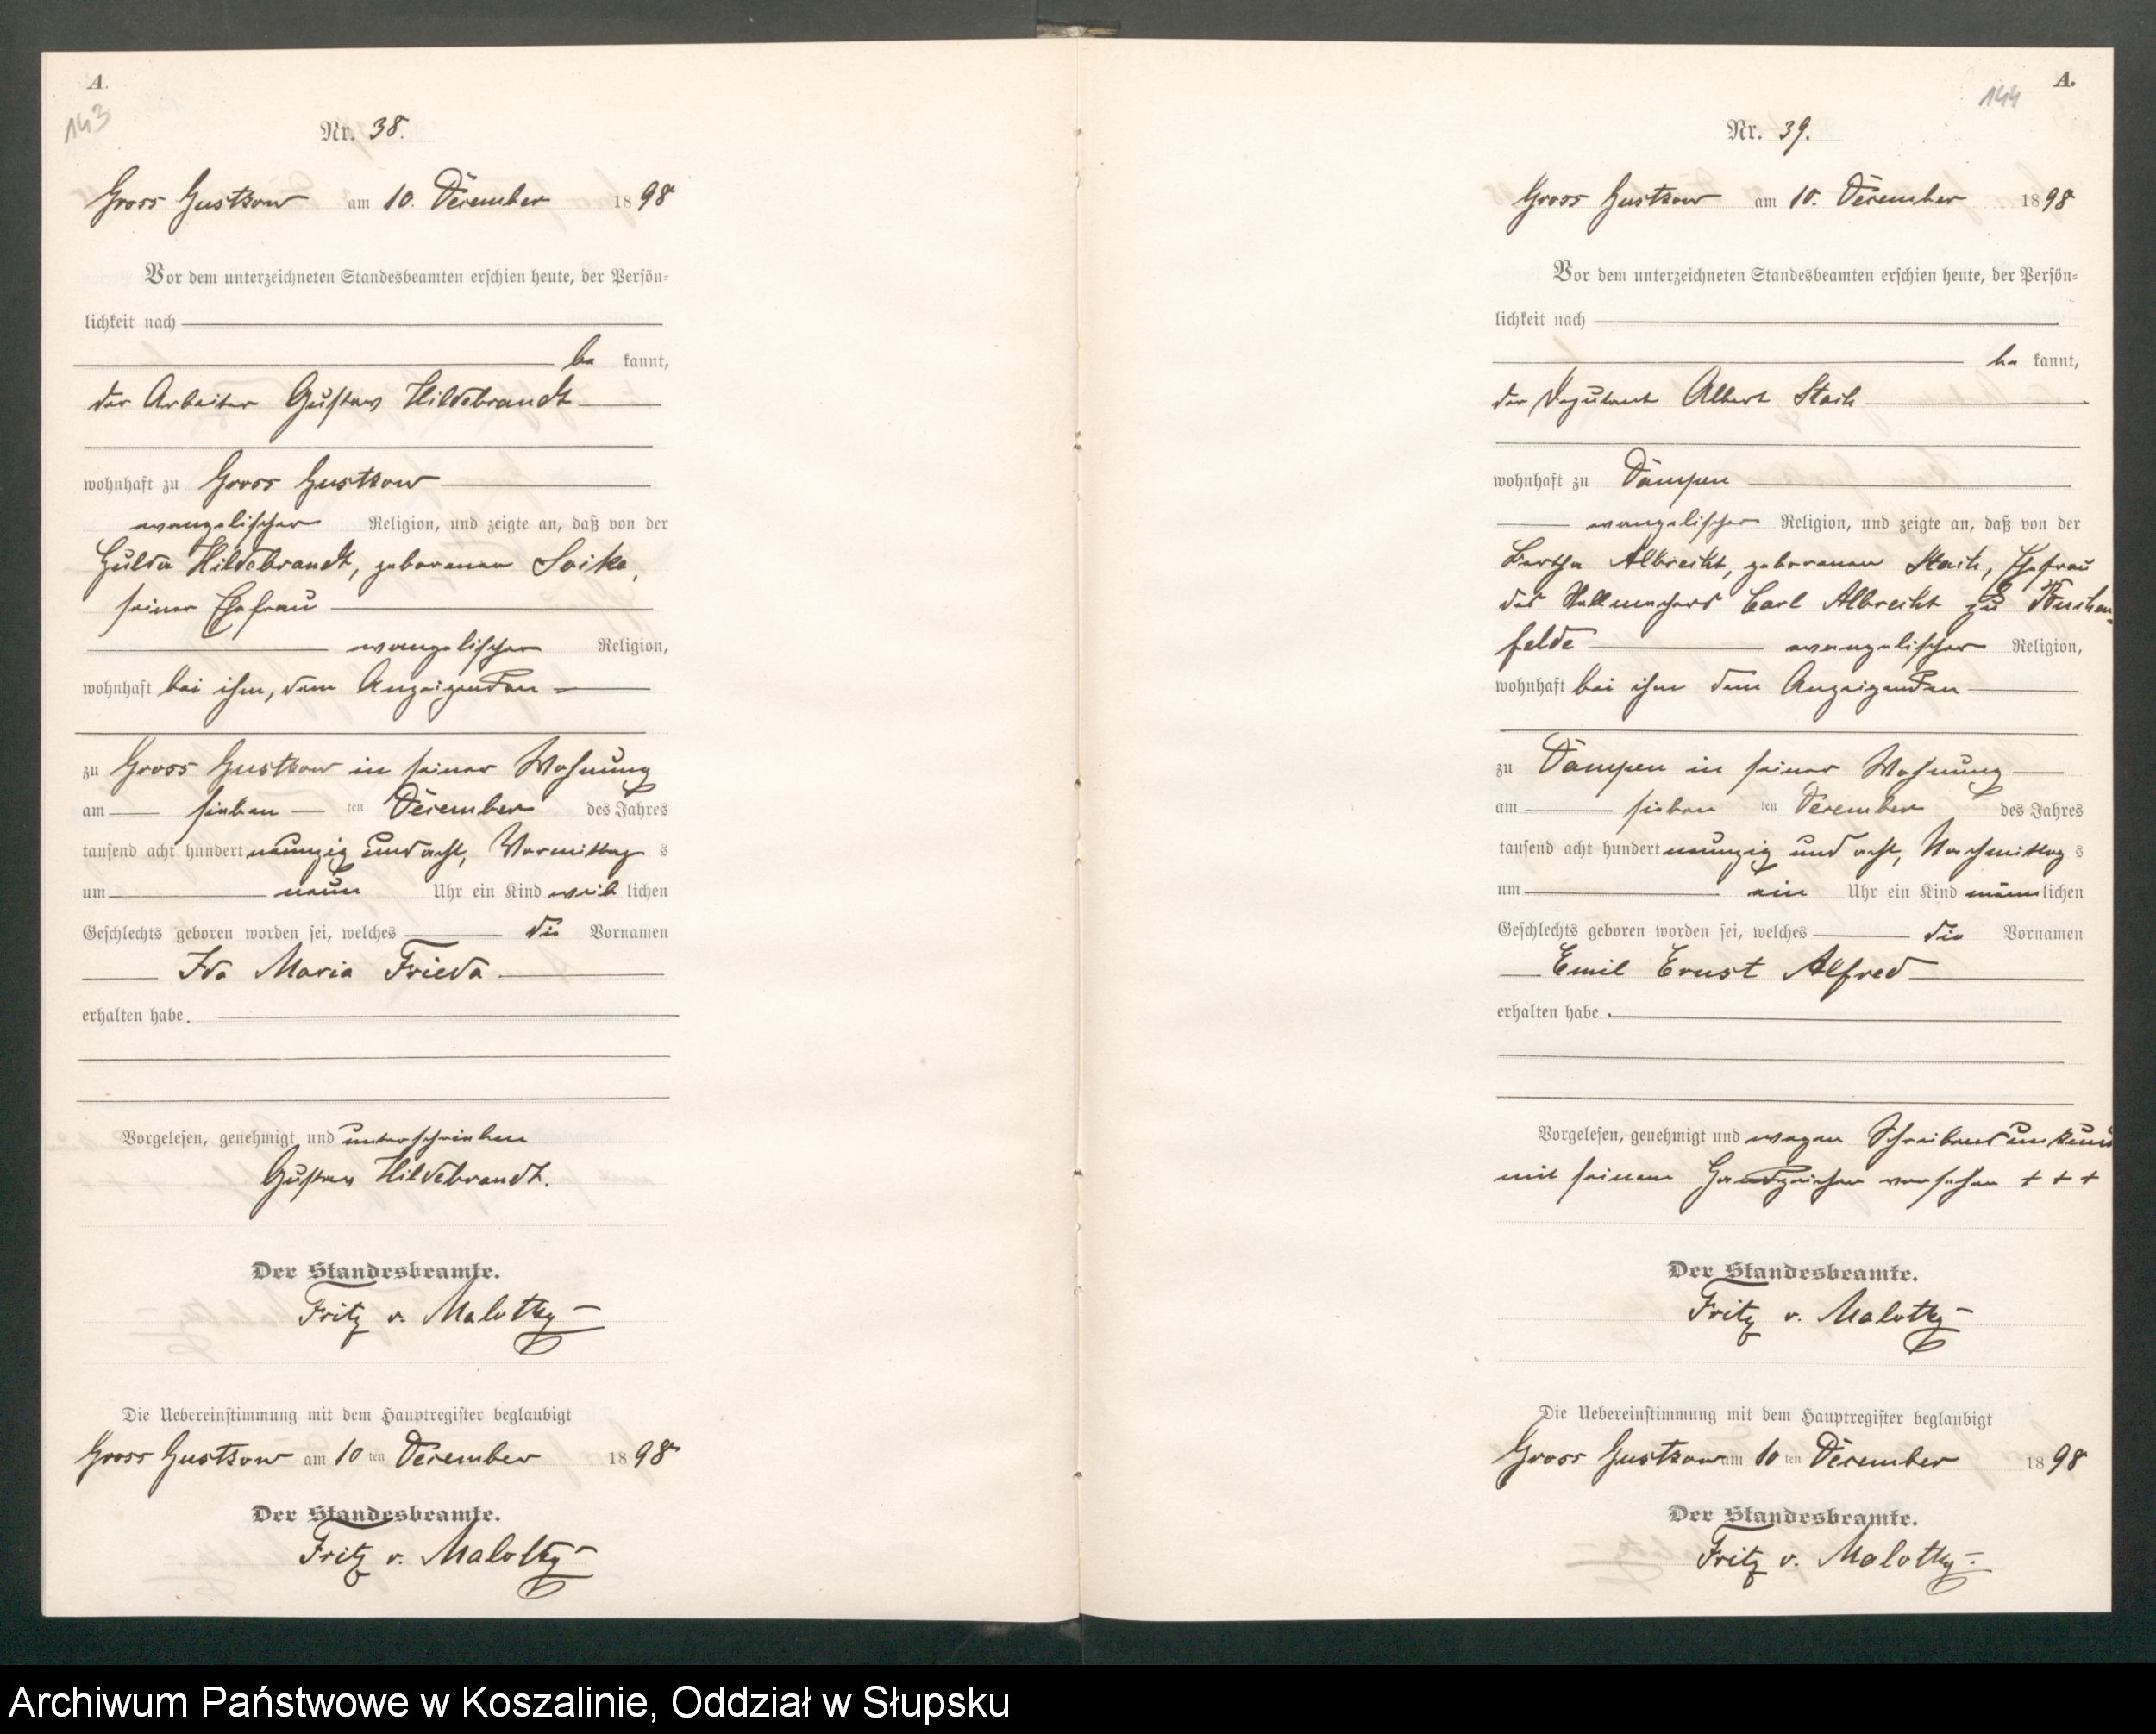 A.
143
Nr. 38.
Gross Gustkow am 10. December 1898
Vor dem unterzeichneten Standesbeamten erschien heute, der Persön-
lichkeit nach
be kannt,
der Arbeiter Gustav Hildebrandt
wohnhaft zu Gross Gustkow
evangelischer Religion, und zeigte an, daß von der
Hulda Hildebrandt, geborenen Soike,
seiner Ehefrau
evangelischer Religion,
wohnhaft bei ihm, dem Anzeigenden
zu Gross Gustkow in seiner Wohnung
am sieben ten December des Jahres
tausend acht hundert neunzig und acht, Vormittag s
um neun Uhr ein Kind weib lichen
Geschlechts geboren worden sei, welches die Vornamen
Ida Maria Frieda
erhalten habe.
Vorgelesen, genehmigt und unterschrieben
Gustav Hildebrandt.
Der Standesbeamte.
Fritz v. Malotky
Die Uebereinstimmung mit dem Hauptregister beglaubigt
Gross Gustkow am 10 ten December 1898
Der Standesbeamte.
Fritz v. Malotky
A.
144
Nr. 39.
Gross Gustkow am 10. December 1898
Vor dem unterzeichneten Standesbeamten erschien heute, der Persön-
lichkeit nach
be kannt,
der Deputant Albert Stach
wohnhaft zu Dampen
evangelischer Religion, und zeigte an, daß von der
Bertha Albrecht, geborenen Stach, Ehefrau
des Stellmachers Carl Albrecht zu
felde evangelischer Religion,
wohnhaft bei ihm dem Anzeigenden
zu Dampen in seiner Wohnung
am sieben ten December des Jahres
tausend acht hundert neunzig und acht, Nachmittag s
um ein Uhr ein Kind männ lichen
Geschlechts geboren worden sei, welches die Vornamen
Emil Ernst Alfred
erhalten habe.
Vorgelesen, genehmigt und wegen Schreibensunkund
mit seinem Handzeichen versehen + + +
Der Standesbeamte.
Fritz v. Malotky
Die Uebereinstimmung mit dem Hauptregister beglaubigt
Gross Gustkow am 10 ten December 1898
Der Standesbeamte.
Fritz v. Malotky
Archiwum Państwowe w Koszalinie, Oddział w Słupsku